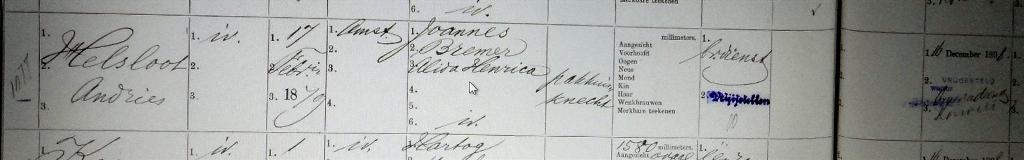 6. iv.
Merkbare teekenen
1. Helsloot
2. Andries
3.
1. iv.
2.
3.
1. 17
2. Febr.
3. 1879
1. Amst.
2.
3.
4.
1. Joannes
2. Bremer
3. Alida Henrica
4.
5.
6. iv.
pakhuis
knecht
millimeters.
Aangezicht
Voorhoofd
Oogen
Neus
Mond
Kin
Haar
Wenkbrauwen
Merkbare teekenen
1. br: dienst
2. Vrijstellen
10
1. 16 December 1898.
2. VRIJGESTELD
3.
1. iv.
1. 1
1. iv.
1. Hartog
1580 millimeters.
Aangezicht ovaal